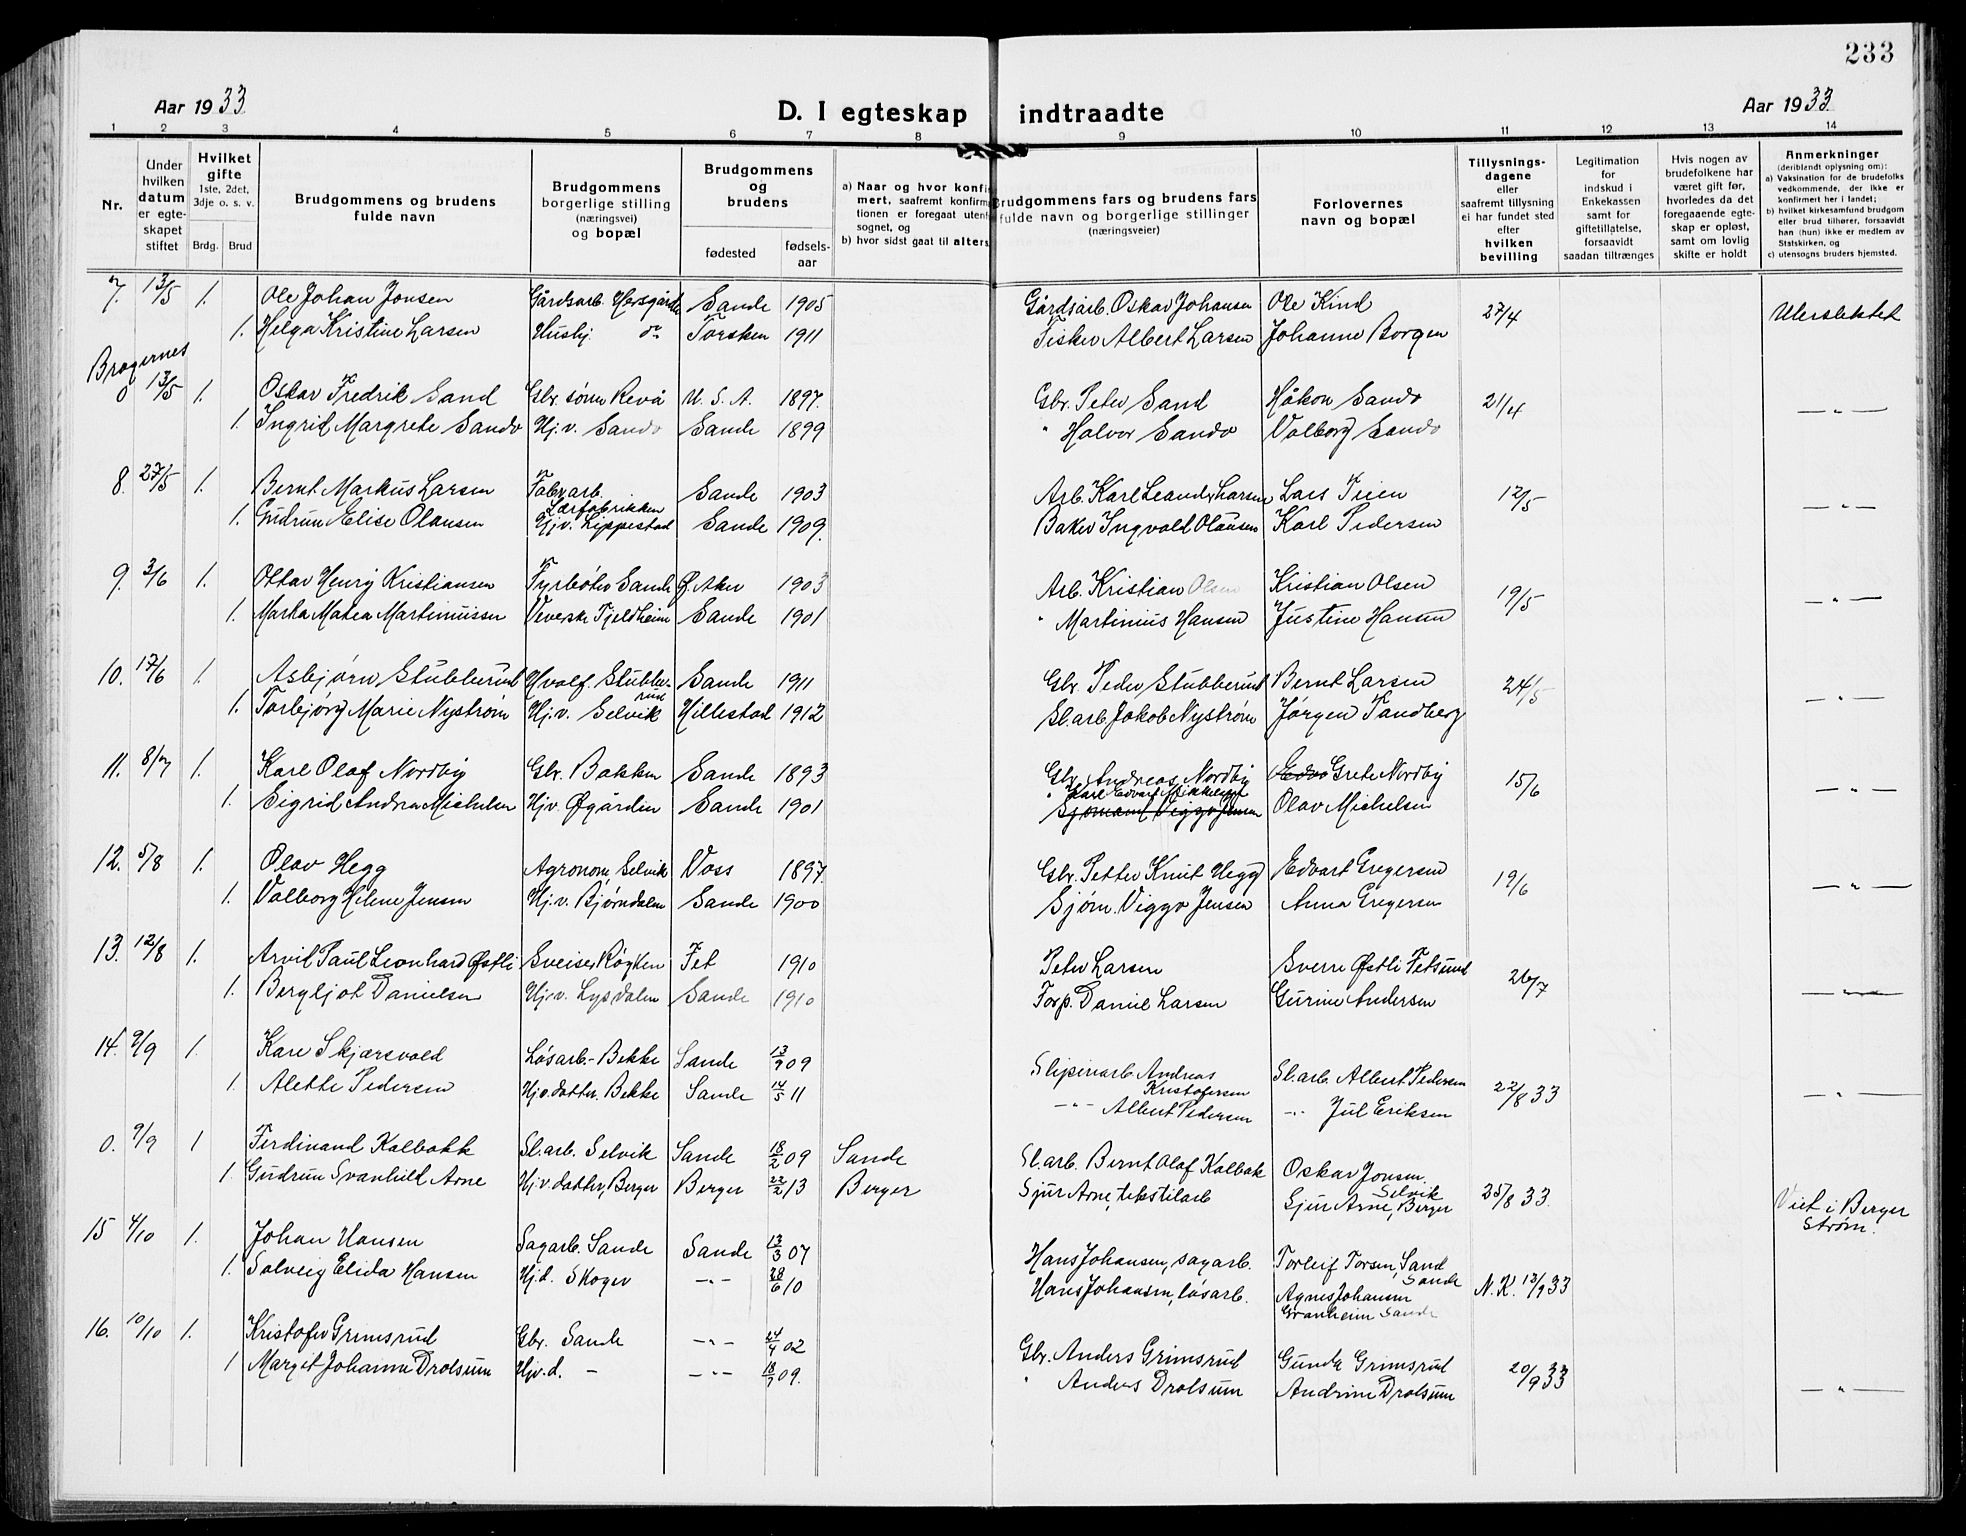 233
Aar 1933
D. I egteskap indtraadte
Aar 1933
1 2 3 4 5 6 7 8 9 10 11 12 13 14
Nr.
Under hvilken datum er egteskapet stiftet
Hvilket gifte
1ste, 2det, 3dje o. s. v.
Brdg. Brud
Brudgommens og brudens fulde navn
Brudgommens borgerlige stilling (næringsvei) og bopæl
Brudgommens og brudens
fødested fødsels-aar
a) Naar og hvor konfirmert, saafremt konfirmationen er foregaat utenfor sognet, og
b) hvor sidst gaat til alters
Brudgommens fars og brudens fars fulde navn og borgerlige stillinger (næringsveier)
Forlovernes navn og bopæl
Tillysningsdagene eller saafremt tillysning ei har fundet sted efter hvilken bevilling
Legitimation for indskud i Enkekassen samt for giftetillatelse, forsaavidt saadan tiltrænges
Hvis nogen av brudefolkene har været gift før, hvorledes da det foregaaende egteskap er opløst, samt om lovlig skifte er holdt
Anmerkninger
(deriblandt oplysning om):
a) Vaksination for de brudefolks vedkommende, der ikke er konfirmert her i landet;
b) hvilket kirkesamfund brudgom eller brud tilhører, forsaavidt han (hun) ikke er medlem av Statskirken, og
c) utensogns bruders hjemsted.
7. 13/5 1. Ole Johan Jonsen Gårdsarb. Sande 1905 Gårdsarb. Oskar Johansen Ole Kind 27/4 Uberslektet
1. Helga Kristine Larsen Hushj. do Torsken 1911 Fisker Albert Larsen Johanne Borgen
Bragernes
0 13/5 1. Oskar Fredrik Sand Gbr. sønn Revå U. S. A. 1897. Gbr. Peter Sand Håkon Sando 21/4 — " —
1. Ingrid Margrete Sando Hj. v. Sando Sande 1899 " Halvor Sando Valborg Sando
8. 27/5 1. Bernt Markus Larsen Fabr. arb. Sande 1903 Arb. Karl Leander Larsen Lars Teien 12/5 — " —
1. Gudrun Elise Olausen Hjv. Lippestad Sande 1909. Baker Ingvald Olausen Karl Pedersen
9. 3/6 1. Ottar Henry Kristiansen Fyrbøter Sande Ø. Aker 1903 Arb. Kristian Olsen Kristian Olsen 19/5 — " —
1. Marta Matea Martinuissen Veverske Fjeldheim Sande 1901 " Martinius Hansen Justine Hansen
10. 17/6 1. Asbjørn Stubberud Hvalf. Stubberud Sande 1911 Gbr. Peder Stubberud Bernt Larsen 24/5 — " —
1. Torbjørg Marie Nystrøm Hj. v. Selvik Hillestad 1912 Sl. arb. Jakob Nystrøm Jørgen Tandberg
11. 8/7 1. Karl Olaf Nordby Gbr. Bakken Sande 1893 Gbr. Andreas Nordby Edv Grete Nordby 15/6 — " —
1. Sigrid Andrea Michelsen Hjv. Øgården Sande 1901 " Karl Edvart Mikkelsen Sjømand Viggo Jensen Olav Michelsen
12. 5/8 1. Olav Hegg Agronom, Selvik Voss 1897. Gbr. Petter Knut Hegg Edvart Gregersen 19/6 — " —
1. Valborg Helene Jensen Hj. v. Bjørndalen Sande 1900 Sjøm. Viggo Jensen Anna Gregersen
13. 12/8 1. Arvit Paul Leonhard Østli Sveiser Røyken Fet 1910 Peter Larsen Sverre Østli Fetsund 26/7 — " —
1. Bergljot Danielsen Hj. v. Lysdalen Sande 1910 Forp. Daniel Larsen Gurine Andersen
14. 9/9 1. Kare Skjærsvold Løsarb. Bekke Sande 13/9 09 Slipiriarb Andreas Kristofersen Sl. arb. Albert Pedersen 22/8 33 — " —
1. Alette Pedersen Hj. v. datter. Bekke Sande 14/5 11 — " — Albert Pedersen — " — Jul Eriksen
0. 9/9 1 Ferdinand Kalbakk Sl. arb. Selvik Sande 18/2 09 Sande Sl. arb. Bernt Olaf Kalbak Oskar Jonsen, Selvik 25/8 33. Viet i Berger
1. Gudrun Svanhild Arne Hj. v. datter, Berger Berger 22/2 13 Berger Sjur Arne, tekstilarb Sjur Arne, Berger Strøm.
15 4/10 1. Johan Hansen Sagarb. Sande Sande 13/3 07 Hans Johansen, sagarb. Torleif Torsen, Sand Sande N. K. 13/9 33
1. Solveig Elida Hansen Hj. d. Skoger — " — 28/6 10 Hans Johansen, løsarb. Agnes Johansen Granheim Sande
16. 10/10 1. Kristofer Grimsrud Gbr. Sande — " — 24/4 02 Gbr. Anders Grimsrud Gunda Grimsrud 20/9 33 — " —
1 Margit Johanne Drolsum Hjv. d. — — " — 18/7 09. " Anders Drolsum Andrine Drolsum